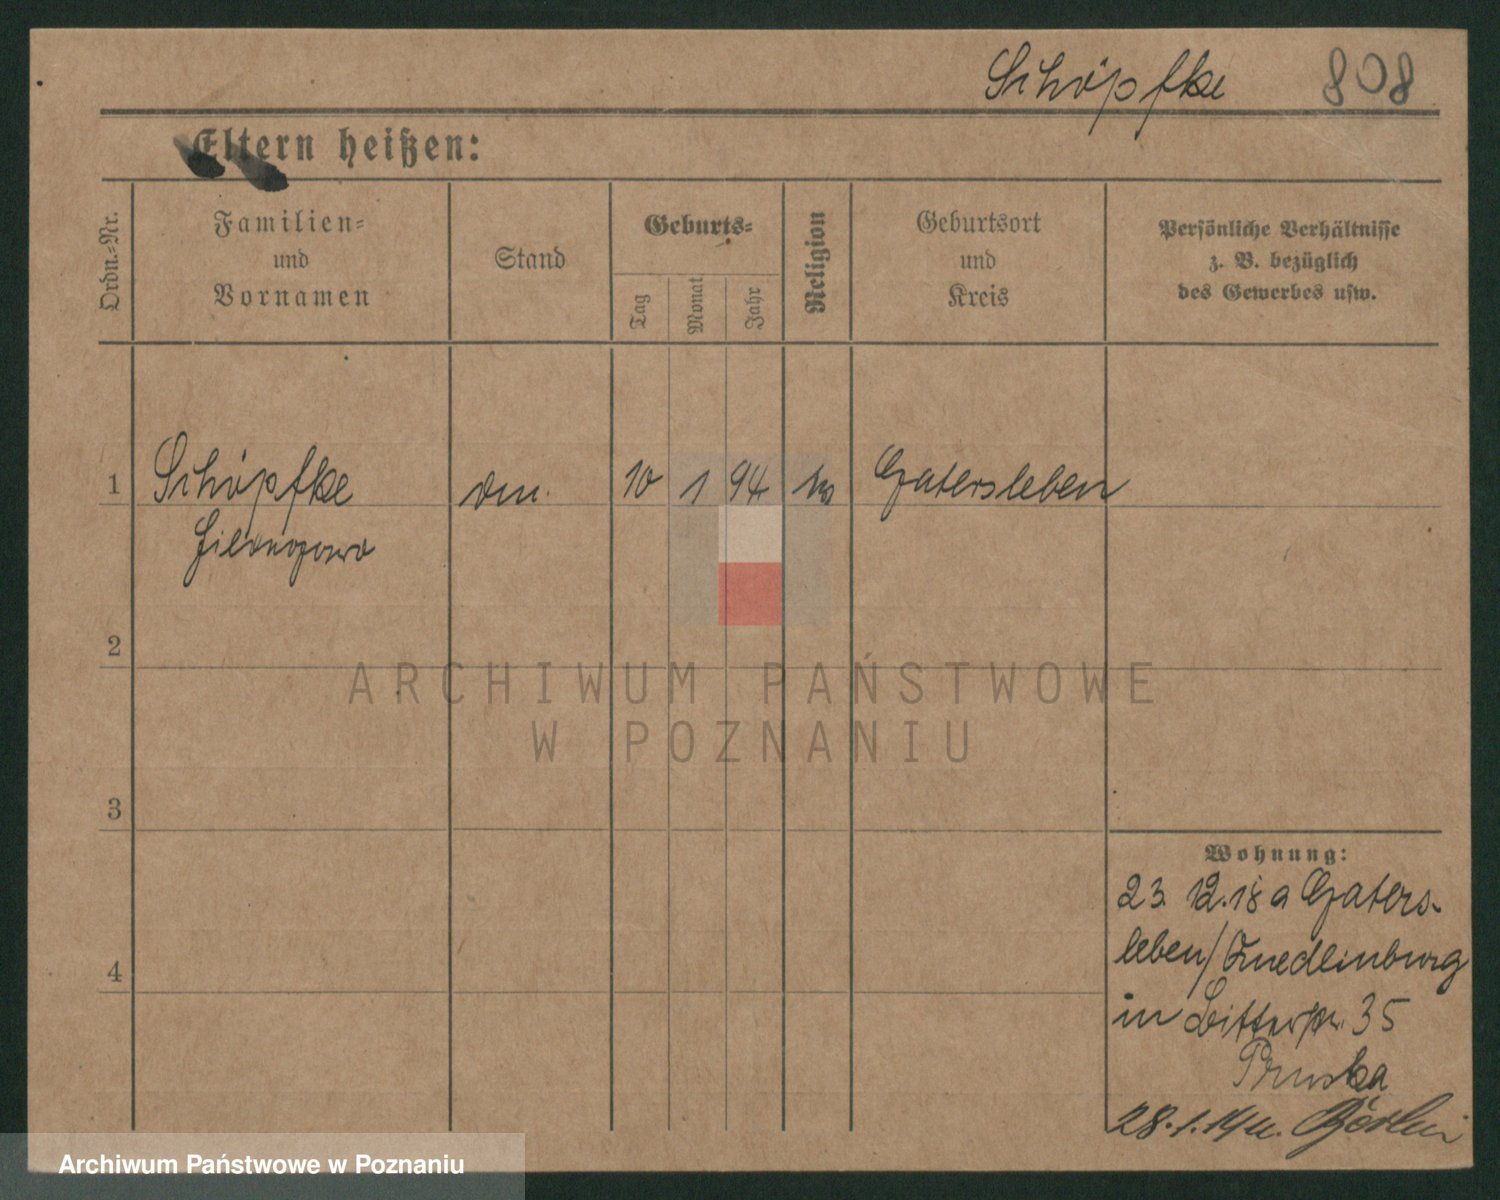 Schöpfke 808
Eltern heißen:
Ordn.-Nr.
Familien-
und
Vornamen
Stand
Geburts-
Tag
Monat
Jahr
Religion
Geburtsort
und
Kreis
Persönliche Verhältnisse
z. B. bezüglich
des Gewerbes usw.
1 Schöpfke 10 1 94 Gatersleben
2
3
4
Wohnung:
23. 12. 18 a Gaters-
leben/Quedlinburg
in Ritterstr. 35
Pruska
28. 1. 19
ARCHIWUM PAŃSTWOWE
W POZNANIU
Archiwum Państwowe w Poznaniu